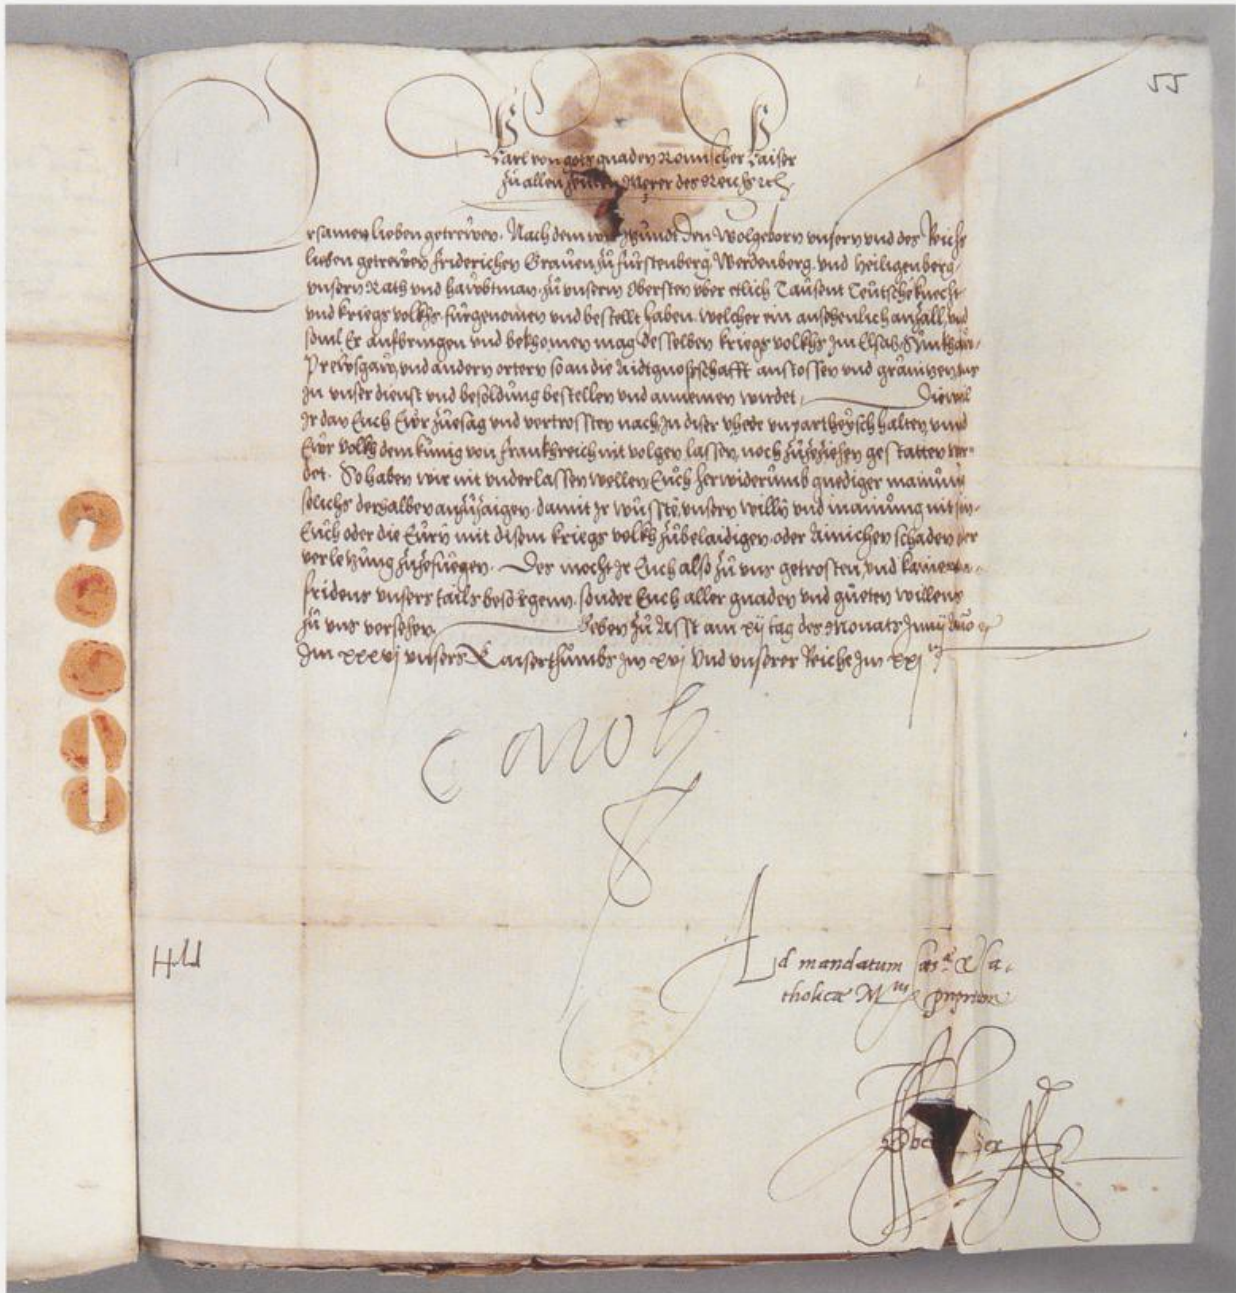 55
Karl von gots gnaden Romischer Kaiser
zu allen zeiten Merer des Reichs etc
Ersamen lieben getrewen. Nach dem wir den Wolgeborn unsern und des Reichs
lieben getrewen Friderichen Graven zu Fürstenberg, Werdenberg und Heiligenberg,
unsern Rath und haubtman, zu unserm Obersten uber etlich Tausent Teutsche knecht
und kriegs volkhs fürgenomen und bestellt haben, welcher ein ansehenlich anzall, und
sovil Er aufbringen und bekhomen mag, desselben kriegs volkhs Im Elsas,
Preysgaw, und andern ortern so an die Aidtgnosschafft anstossen und
In unser dienst und besoldung bestellen und annemen wirdet, Dieweil
Ir dan Euch Ewr zuesag und vertrossten nach In diser vhede unpartheysch halten und
Ewr volkh dem künig von Frankhreich nit volgen lassen, noch zuzeziehen gestatten wer-
det. So haben wir nit underlassen wellen Euch herwiderumb gnediger mainung
solichs derhalben anzuzaigen, damit Ir wüsste, unsern willen und mainung nit sin,
Euch oder die Eurn mit disem kriegs volkh zubelaidigen, oder Ainichen schaden oder
verletzung zuzefuegen. Des mocht Ir Euch also zu uns getrosten, und
fridens unsers tails besorgenn, sonder Euch aller gnaden und gueten willens
zu uns versehen. Geben zu Asst am xij tag des Monats Junij Anno etc
Im xxxvj unsers Kaiserthumbs Im xvj und unserer Reiche Im xxj
Carolus
Held
Ad mandatum Caes.ae & Ca-
tholicae M.tis proprium